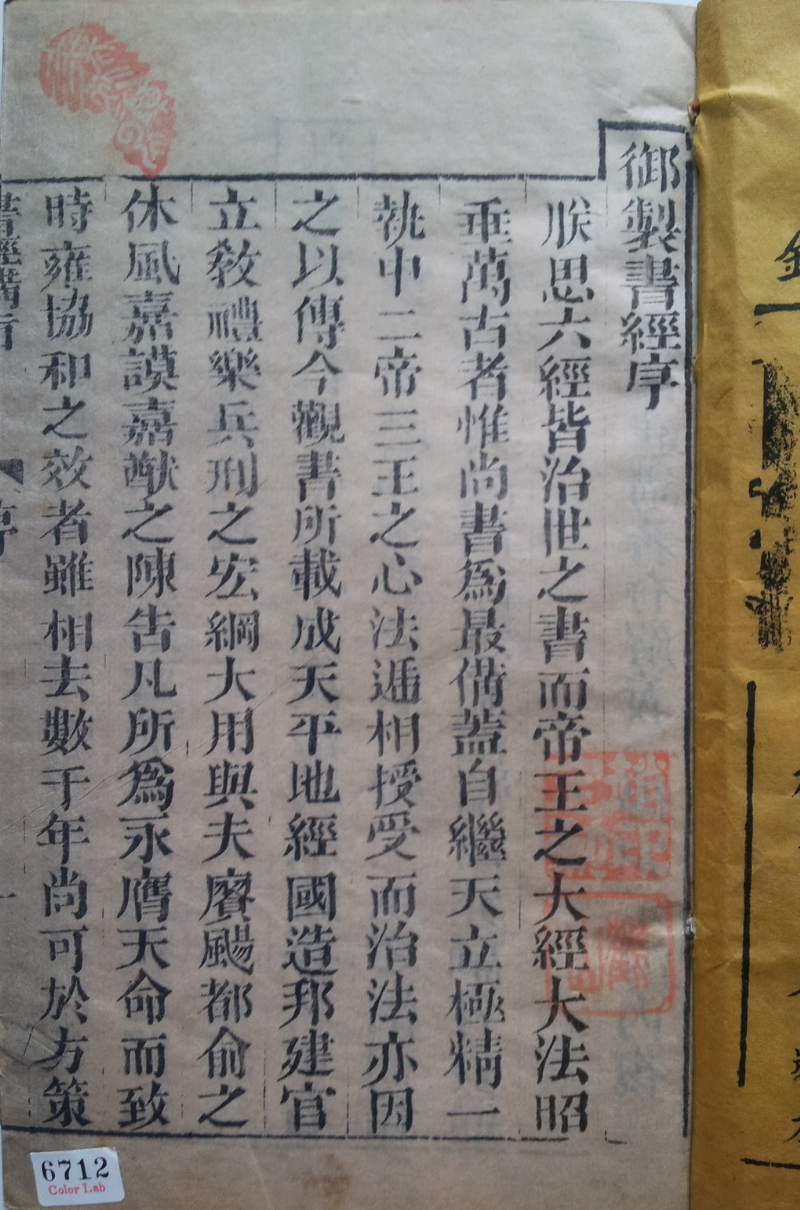 御製書經序
朕思六經皆治世之書而帝王之大經大法昭
垂萬古者惟尚書爲最備蓋自繼天立極精一
執中二帝三王之心法遞相授受而治法亦因
之以傳今觀書所載成天平地經國造邦建官
立敎禮樂兵刑之宏綱大用與夫賡颺都俞之
休風嘉謨嘉猷之陳告凡所爲永膺天命而致
時雍協和之效者雖相去數千年尚可於方策
序
6712
Color Lab